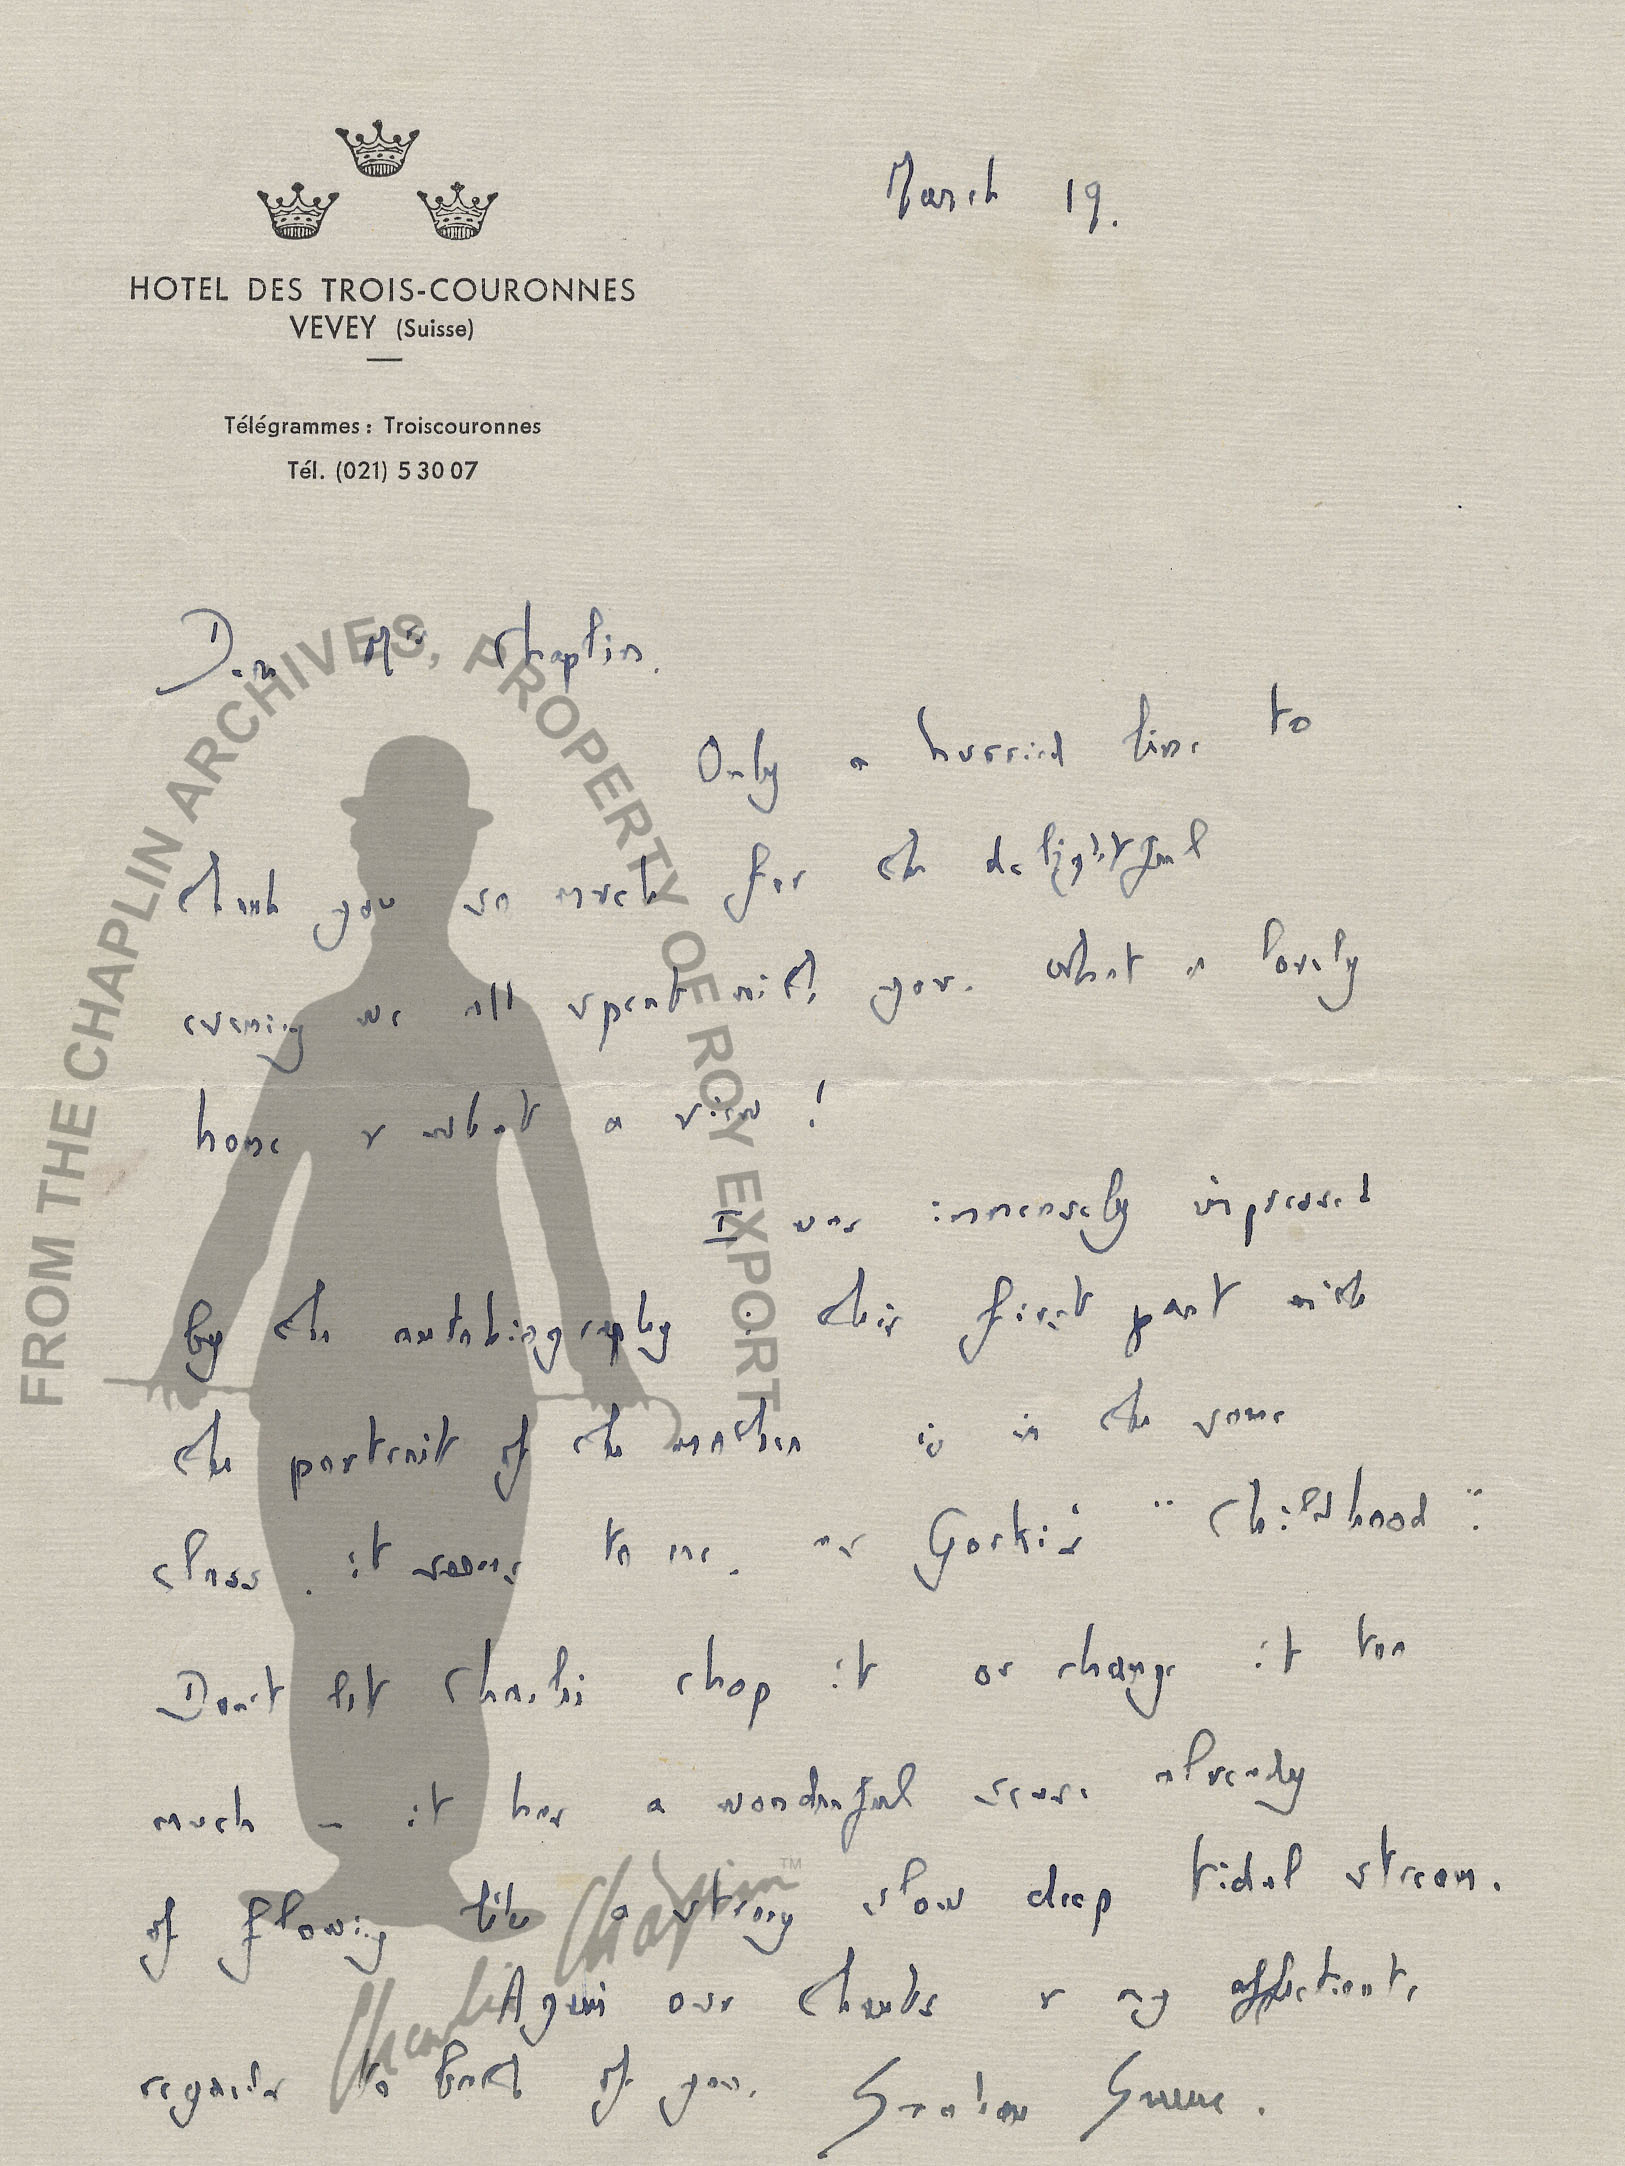 March 19.
HOTEL DES TROIS-COURONNES
VEVEY (Suisse)
Télégrammes: Troiscouronnes
Tél. (021) 5 30 07
Dear Mrs Chaplin.
Only a hurried line to
thank you so much for the delightful
evening we all spent with you. What a lovely
home & what a view!
I was immensely impressed
by the autobiography: this first part with
the portrait of the mother is in the same
class, it seems to me, as Gorki's "Childhood".
Don't let Charlie chop it or change it too
much – it has a wonderful sense already
of flowing like a strong slow deep tidal stream.
Again our thanks & my affectionate
regards to both of you. Graham Greene.
FROM THE CHAPLIN ARCHIVES, PROPERTY OF ROY EXPORT
Charlie Chaplin™